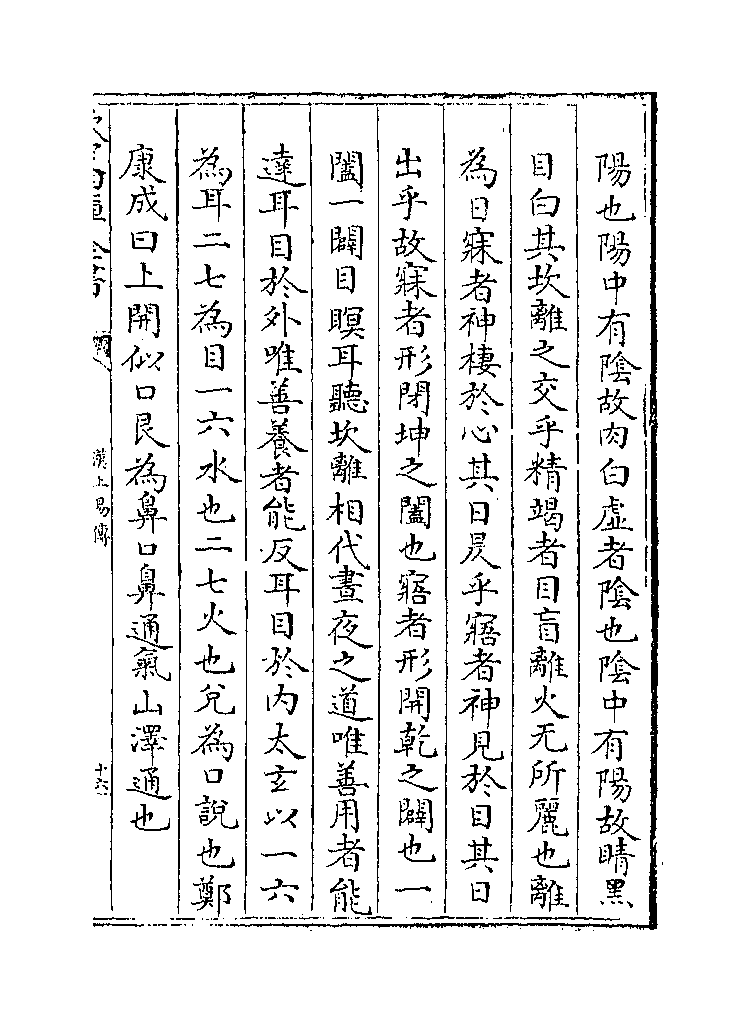 陽也陽中有陰故肉白虛者陰也陰中有陽故睛黑
目白其坎離之交乎精竭者目盲離火无所麗也離
為日寐者神棲於心其日昃乎寤者神見於目其日
出乎故寐者形閉坤之闔也寤者形開乾之闢也一
闔一闢目瞑耳聽坎離相代晝夜之道唯善用者能
達耳目於外唯善養者能反耳目於内太玄以一六
為耳二七為目一六水也二七火也兊為口說也鄭
康成曰上開似口艮為鼻口鼻通氣山澤通也
漢上易傳
十六